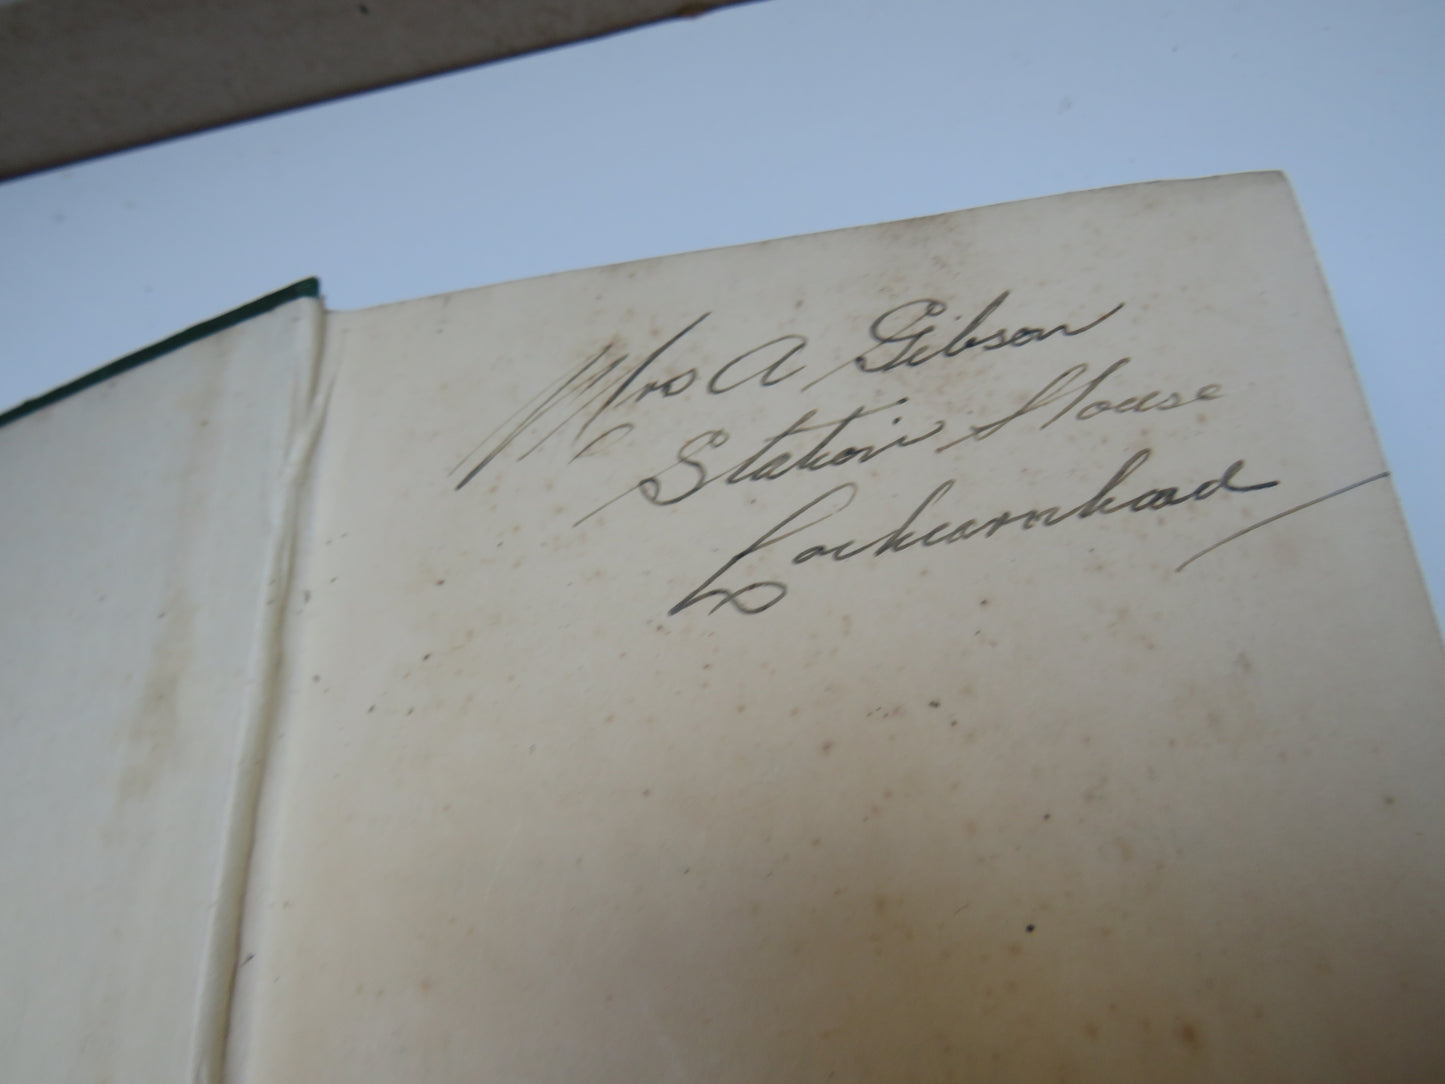 Mrs A Gibson
Station House
Lochearnhead